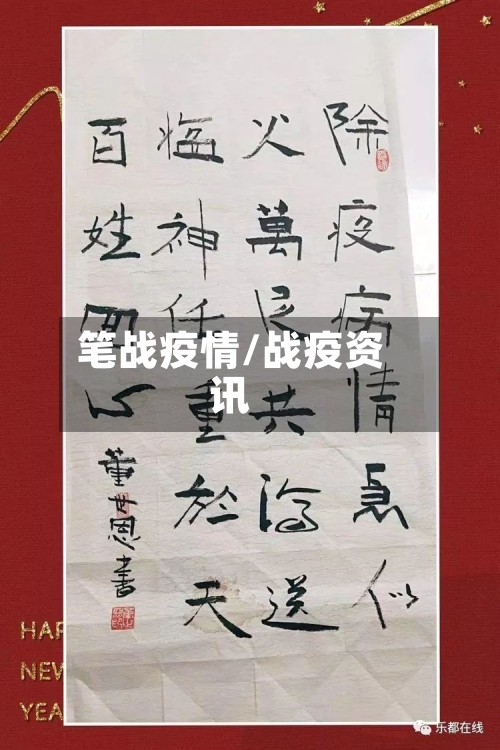 除疫病情急似
火萬民共送
瘟神任重於天
百姓心
董世恩書
笔战疫情/战疫资
讯
HAP
NEW
YEA
乐都在线